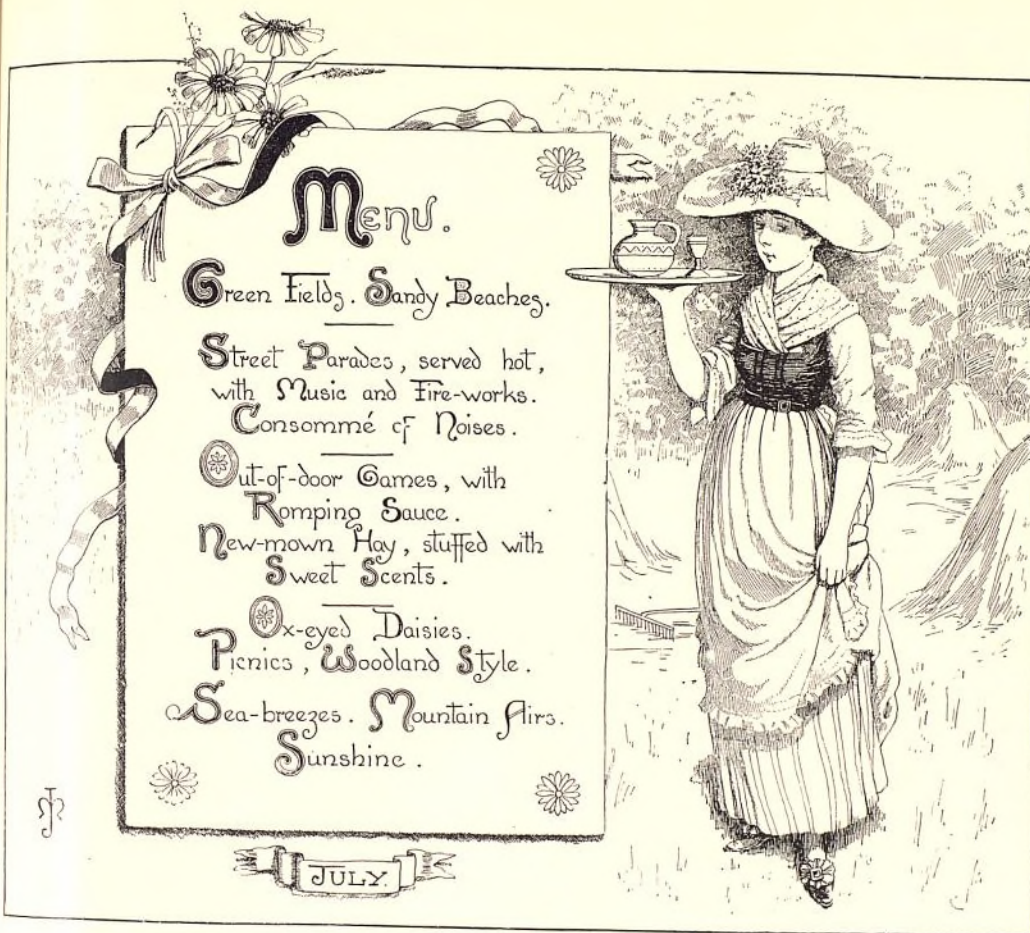 Menu.
Green Fields. Sandy Beaches.
Street Parades, served hot,
with Music and Fire-works.
Consommé of Noises.
Out-of-door Games, with
Romping Sauce.
New-mown Hay, stuffed with
Sweet Scents.
Ox-eyed Daisies.
Picnics, Woodland Style.
Sea-breezes. Mountain Airs.
Sunshine.
JULY.